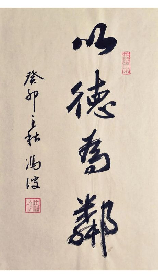 以德為鄰
癸卯之秋 馮波